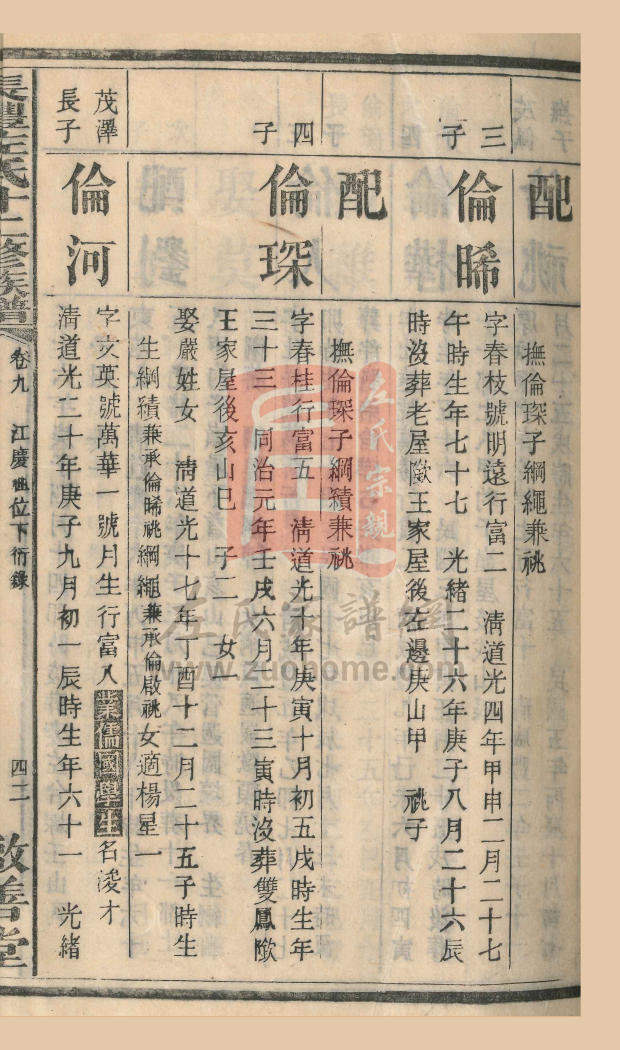 配
撫倫琛子綱繩兼祧
三子
倫晞
字春枝號明遠行富二 清道光四年甲申二月二十七
午時生年七十七 光緒二十六年庚子八月二十六辰
時沒葬老屋隞王家屋後左邊庚山甲 祧子
配
撫倫琛子綱積兼祧
四子
倫琛
字春桂行富五 清道光十年庚寅十月初五戌時生年
三十三 同治元年壬戌六月二十三寅時沒葬雙鳳隞
王家屋後亥山巳 子二 女一
娶嚴姓女 清道光十七年丁酉十二月二十五子時生
生綱積兼承倫晞祧綱繩兼承倫啟祧女適楊星一
茂澤長子
倫河
字文英號萬華一號月生行富八業儒國學生名浚才
清道光二十年庚子九月初一辰時生年六十一 光緒
長豐左氏十二修族譜
卷九 江慶 位下衍錄
四二
啟善堂
左氏宗親
左氏家譜
www.zuohome.com